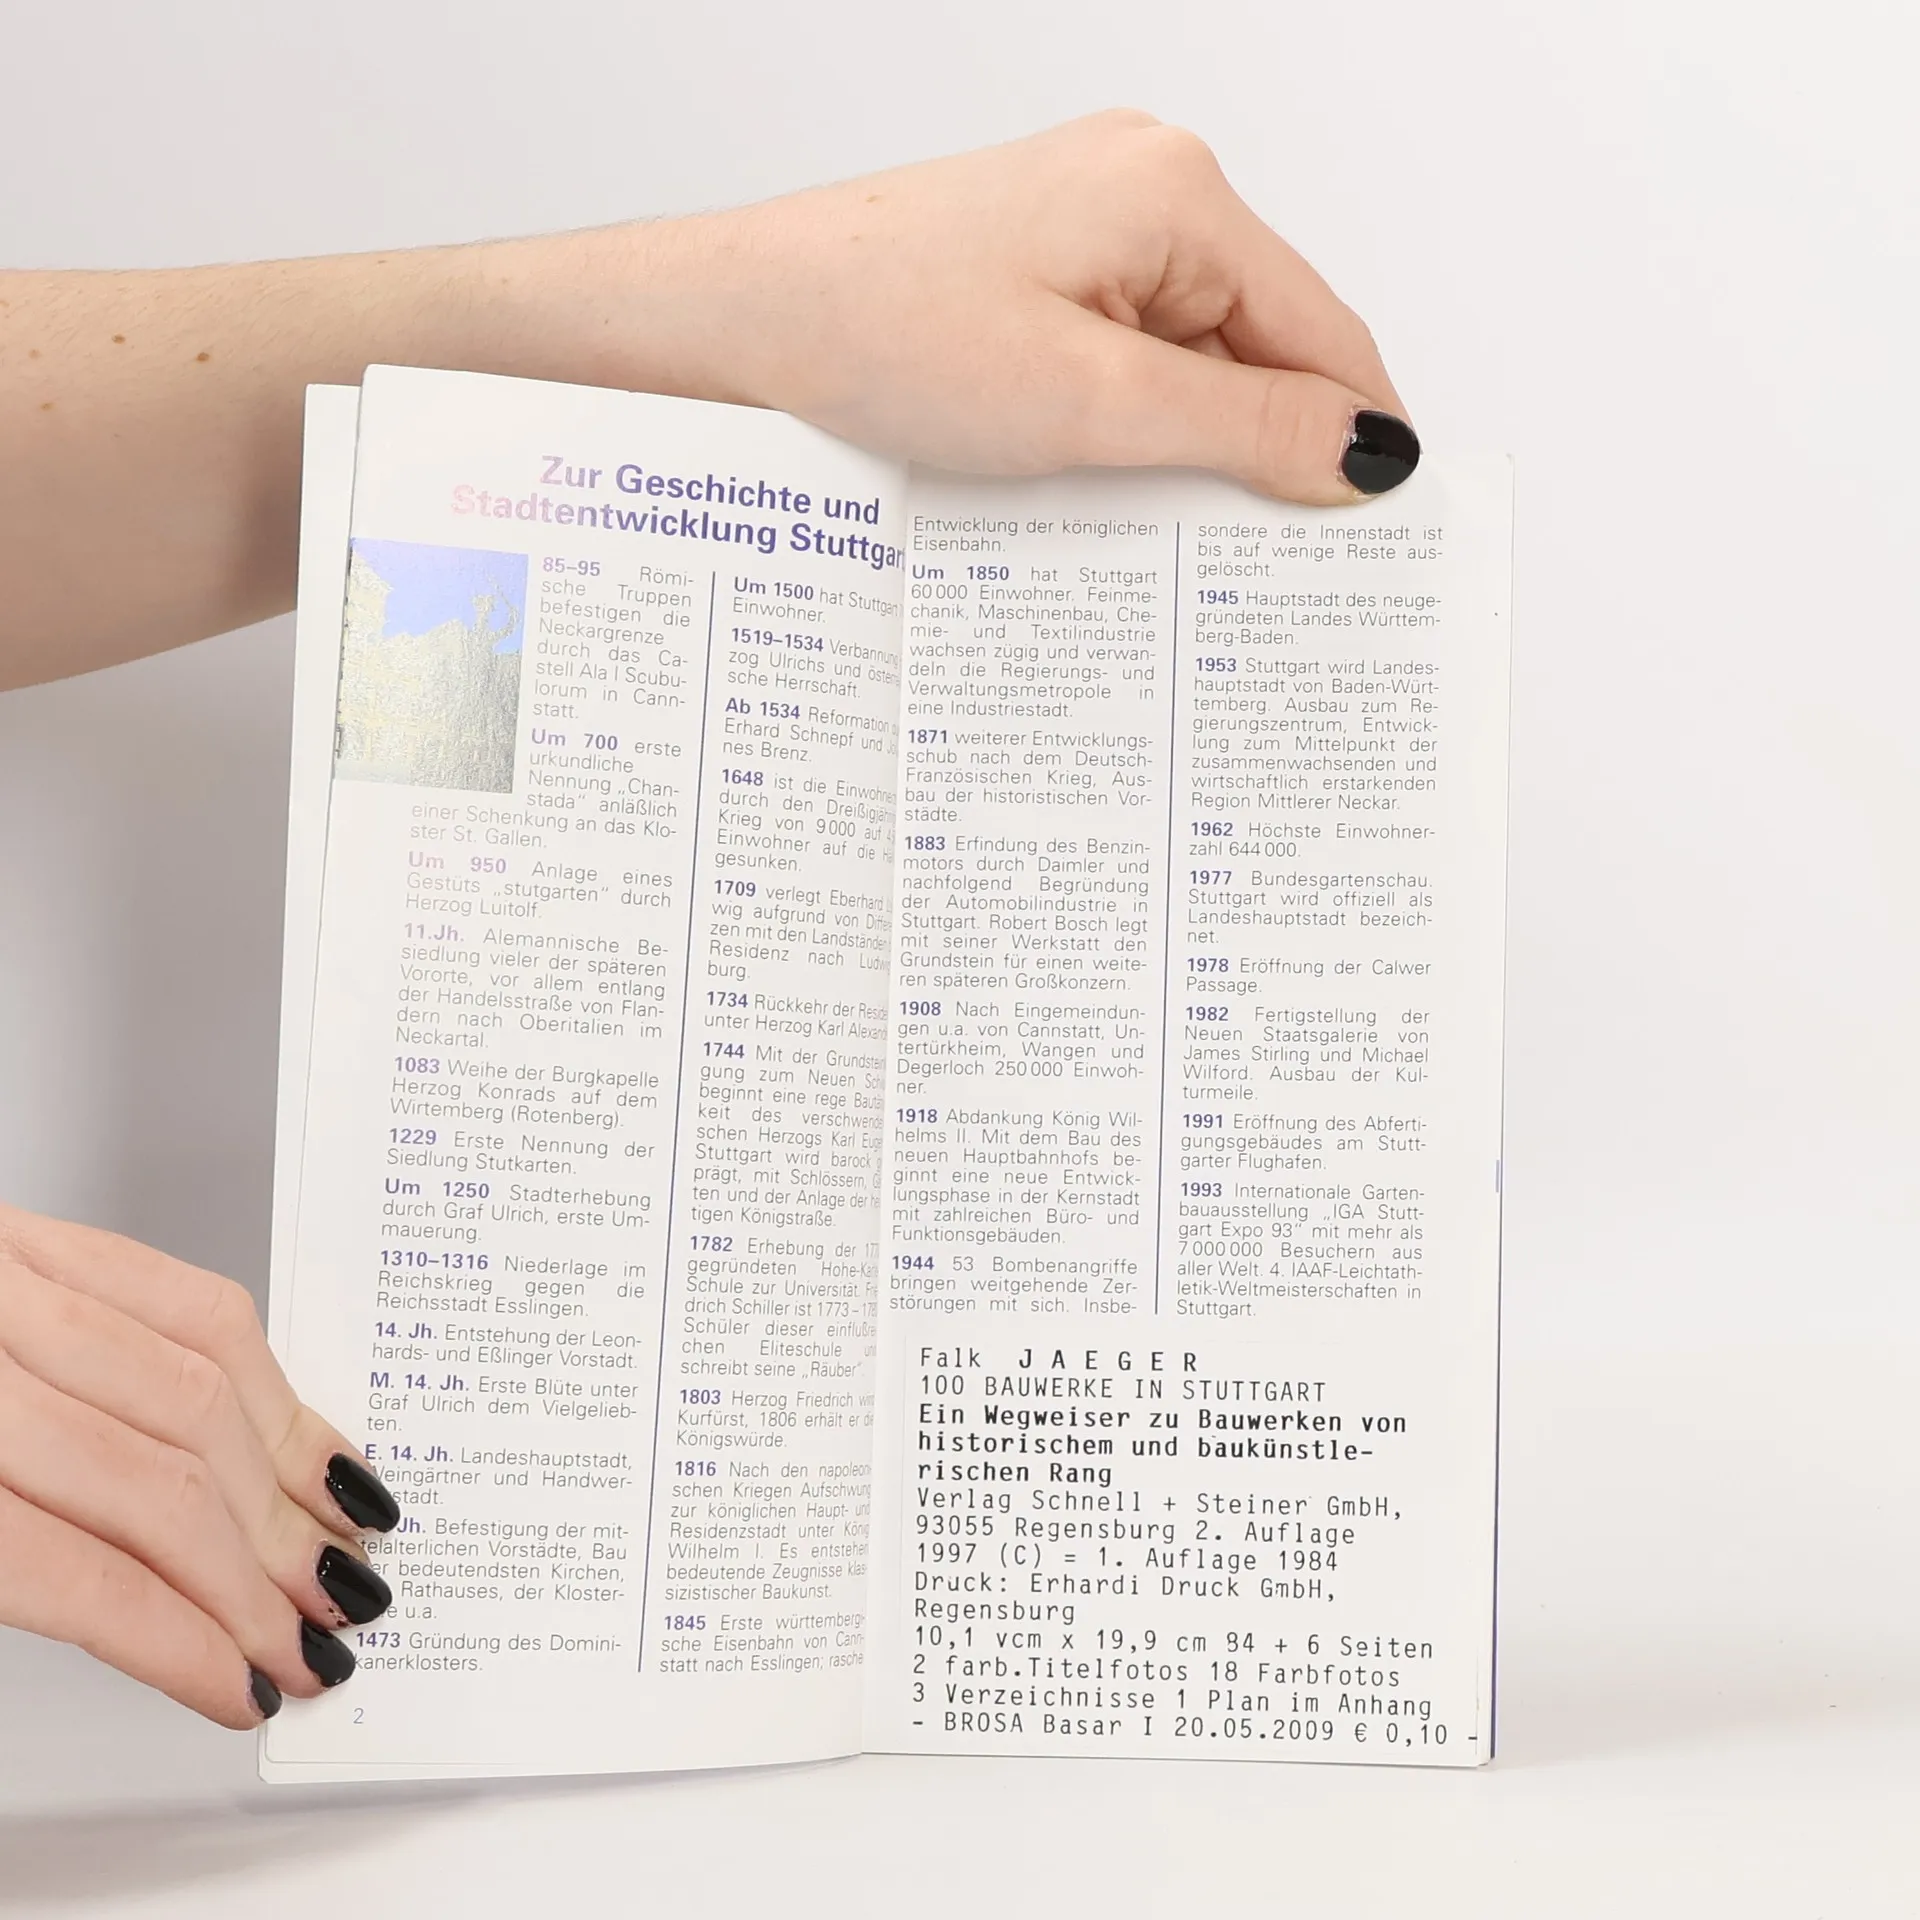 Zur Geschichte und
Stadtentwicklung Stuttgar
85–95 Römi-
sche Truppen
befestigen die
Neckargrenze
durch das Ca-
stell Ala I Scubu-
lorum in Cann-
statt.
Um 700 erste
urkundliche
Nennung „Chan-
stada“ anläßlich
einer Schenkung an das Klo-
ster St. Gallen.
Um 950 Anlage eines
Gestüts „stutgarten“ durch
Herzog Luitolf.
11.Jh. Alemannische Be-
siedlung vieler der späteren
Vororte, vor allem entlang
der Handelsstraße von Flan-
dern nach Oberitalien im
Neckartal.
1083 Weihe der Burgkapelle
Herzog Konrads auf dem
Wirtemberg (Rotenberg).
1229 Erste Nennung der
Siedlung Stutkarten.
Um 1250 Stadterhebung
durch Graf Ulrich, erste Um-
mauerung.
1310–1316 Niederlage im
Reichskrieg gegen die
Reichsstadt Esslingen.
14. Jh. Entstehung der Leon-
hards- und Eßlinger Vorstadt.
M. 14. Jh. Erste Blüte unter
Graf Ulrich dem Vielgelieb-
ten.
E. 14. Jh. Landeshauptstadt,
Weingärtner und Handwer-
stadt.
Jh. Befestigung der mit-
telalterlichen Vorstädte, Bau
er bedeutendsten Kirchen,
Rathauses, der Kloster-
e u.a.
1473 Gründung des Domini-
kanerklosters.
2
Um 1500 hat Stuttgart
Einwohner.
1519–1534 Verbannung
zog Ulrichs und österrei
sche Herrschaft.
Ab 1534 Reformation
Erhard Schnepf und Jo
nes Brenz.
1648 ist die Einwohner
durch den Dreißigjähr
Krieg von 9000 auf
Einwohner auf die Hä
gesunken.
1709 verlegt Eberhard Lu
wig aufgrund von Differe
zen mit den Landständen
Residenz nach Ludwi
burg.
1734 Rückkehr der Resid
unter Herzog Karl Alexand
1744 Mit der Grundstein
gung zum Neuen Sch
beginnt eine rege Bautä
keit des verschwende
schen Herzogs Karl Euge
Stuttgart wird barock g
prägt, mit Schlössern, G
ten und der Anlage der he
tigen Königstraße.
1782 Erhebung der 177
gegründeten Hohe-Karl
Schule zur Universität. Frie
drich Schiller ist 1773–178
Schüler dieser einflußrei
chen Eliteschule un
schreibt seine „Räuber“.
1803 Herzog Friedrich wird
Kurfürst, 1806 erhält er die
Königswürde.
1816 Nach den napoleoni
schen Kriegen Aufschwung
zur königlichen Haupt- und
Residenzstadt unter König
Wilhelm I. Es entstehen
bedeutende Zeugnisse klas
sizistischer Baukunst.
1845 Erste württembergi-
sche Eisenbahn von Cann-
statt nach Esslingen; rasche
Entwicklung der königlichen
Eisenbahn.
Um 1850 hat Stuttgart
60000 Einwohner. Feinme-
chanik, Maschinenbau, Che-
mie- und Textilindustrie
wachsen zügig und verwan-
deln die Regierungs- und
Verwaltungsmetropole in
eine Industriestadt.
1871 weiterer Entwicklungs-
schub nach dem Deutsch-
Französischen Krieg, Aus-
bau der historistischen Vor-
städte.
1883 Erfindung des Benzin-
motors durch Daimler und
nachfolgend Begründung
der Automobilindustrie in
Stuttgart. Robert Bosch legt
mit seiner Werkstatt den
Grundstein für einen weite-
ren späteren Großkonzern.
1908 Nach Eingemeindun-
gen u.a. von Cannstatt, Un-
tertürkheim, Wangen und
Degerloch 250000 Einwoh-
ner.
1918 Abdankung König Wil-
helms II. Mit dem Bau des
neuen Hauptbahnhofs be-
ginnt eine neue Entwick-
lungsphase in der Kernstadt
mit zahlreichen Büro- und
Funktionsgebäuden.
1944 53 Bombenangriffe
bringen weitgehende Zer-
störungen mit sich. Insbe-
sondere die Innenstadt ist
bis auf wenige Reste aus-
gelöscht.
1945 Hauptstadt des neuge-
gründeten Landes Württem-
berg-Baden.
1953 Stuttgart wird Landes-
hauptstadt von Baden-Würt-
temberg. Ausbau zum Re-
gierungszentrum, Entwick-
lung zum Mittelpunkt der
zusammenwachsenden und
wirtschaftlich erstarkenden
Region Mittlerer Neckar.
1962 Höchste Einwohner-
zahl 644000.
1977 Bundesgartenschau.
Stuttgart wird offiziell als
Landeshauptstadt bezeich-
net.
1978 Eröffnung der Calwer
Passage.
1982 Fertigstellung der
Neuen Staatsgalerie von
James Stirling und Michael
Wilford. Ausbau der Kul-
turmeile.
1991 Eröffnung des Abferti-
gungsgebäudes am Stutt-
garter Flughafen.
1993 Internationale Garten-
bauausstellung „IGA Stutt-
gart Expo 93“ mit mehr als
7000000 Besuchern aus
aller Welt. 4. IAAF-Leichtath-
letik-Weltmeisterschaften in
Stuttgart.
Falk J A E G E R
100 BAUWERKE IN STUTTGART
Ein Wegweiser zu Bauwerken von
historischem und baukünstle-
rischen Rang
Verlag Schnell + Steiner GmbH,
93055 Regensburg 2. Auflage
1997 (C) = 1. Auflage 1984
Druck: Erhardi Druck GmbH,
Regensburg
10,1 vcm x 19,9 cm 84 + 6 Seiten
2 farb.Titelfotos 18 Farbfotos
3 Verzeichnisse 1 Plan im Anhang
- BROSA Basar I 20.05.2009 € 0,10 -